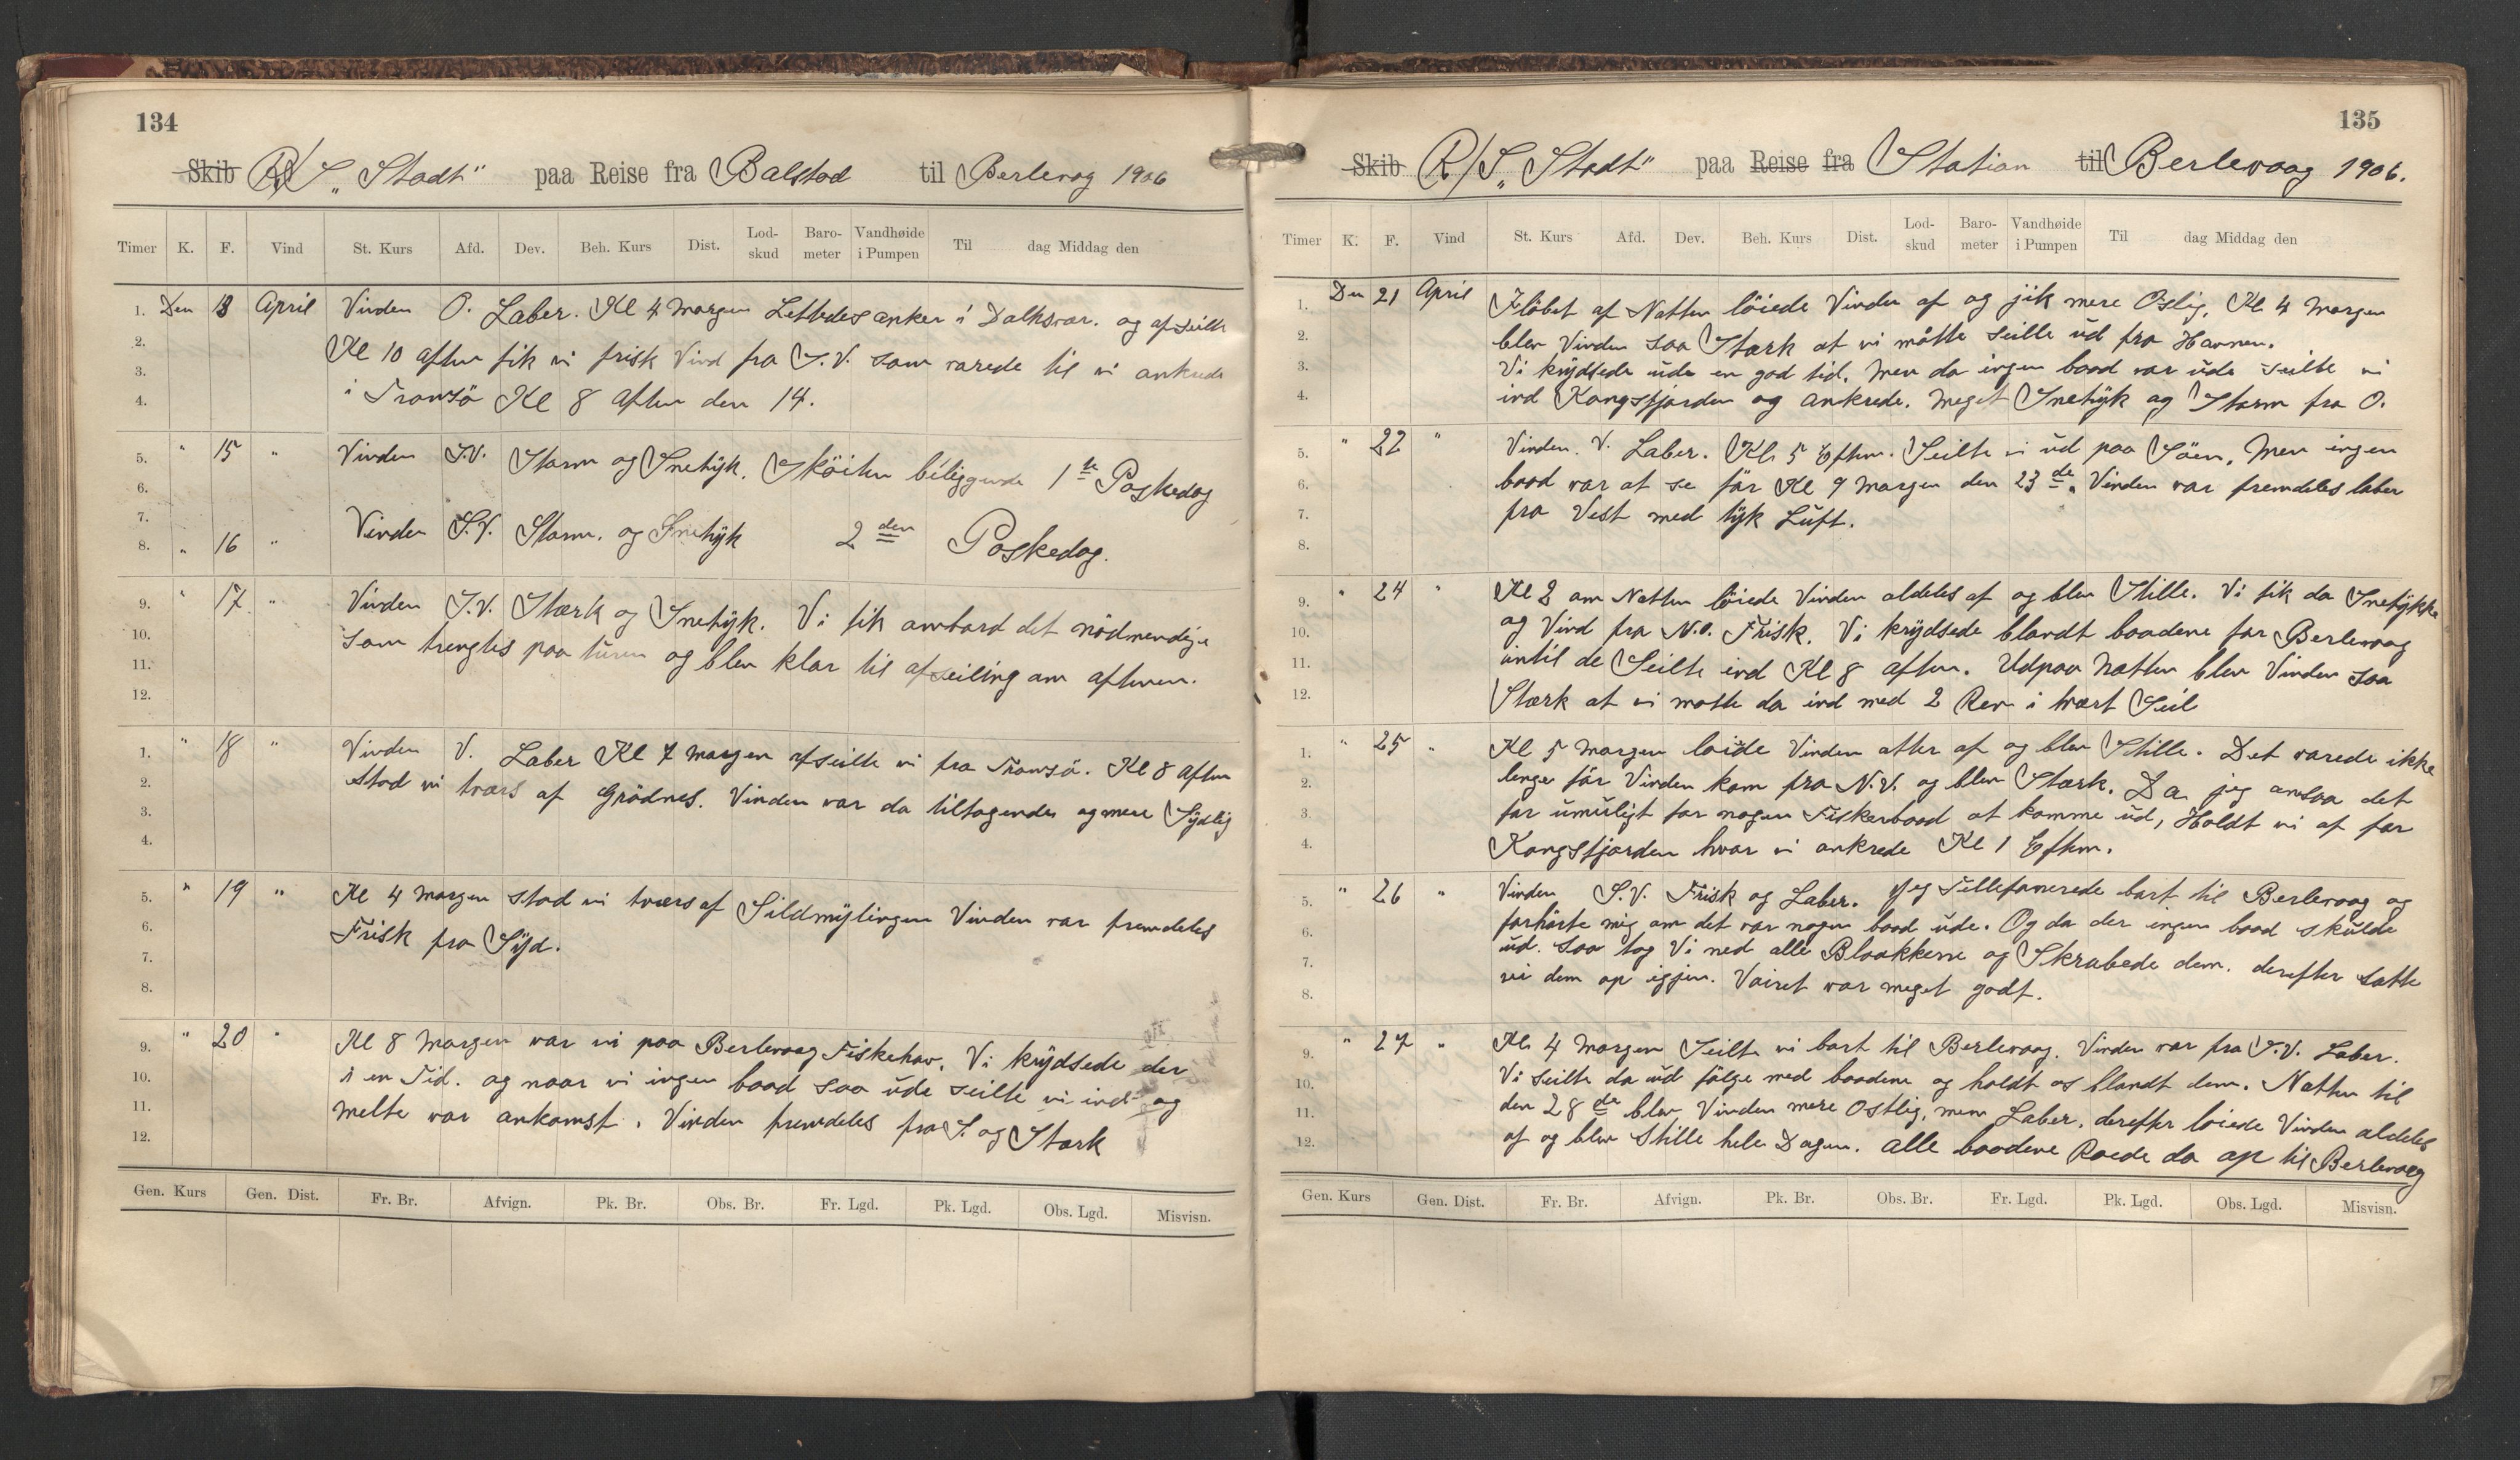 134
Skib R/S „Stadt" paa Reise fra Balstad til Berlevog 1906
Timer K. F. Vind St. Kurs Afd. Dev. Beh. Kurs Dist. Lod-skud Baro-meter Vandhøide i Pumpen Til dag Middag den
1. Den 13 April Vinden O. Laber. Kl 4 Morgen Lettedes anker i Dalksvær. og afseilte
2. Kl 10 aften fik vi frisk Vind fra S.V. som varede til vi ankrede
3.
4. i Tromsö Kl 8 aften den 14.
5. " 15 " Vinden S.V. Storm og Snetÿk. Sköiten biliggende 1ste Paskedag
6.
7.
8. " 16 " Vinden S.V. Storm. og Snetÿk 2den Paskedag.
9. " 17 " Vinden S.V. Stærk og Snetÿk. Vi fik ombord det nödvendige
10. som trengtes paa turen og blev klar til afseiling om aftenen.
11.
12.
1. " 18 " Vinden V. Laber Kl 7 Morgen afseilte vi fra Tromsö. Kl 8 aften
2. stod vi tvers af Grödnes. Vinden var da tiltagende og mere Sÿdlig
3.
4.
5. " 19 " Kl 4 Morgen stod vi tvers af Sildmÿlingen Vinden var fremdeles
6. Frisk fra Sÿd.
7.
8.
9. " 20 " Kl 8 Morgen var vi paa Berlevaag Fiskehav. Vi krÿdsede der
10. i en Tid. og naar vi ingen baad saa ude seilte vi ind og
11. melte vor ankomst. Vinden fremdeles fra S. og Stærk
12.
Gen. Kurs Gen. Dist. Fr. Br. Afvign. Pk. Br. Obs. Br. Fr. Lgd. Pk. Lgd. Obs. Lgd. Misvisn.
135
Skib R/S „Stadt" paa Reise fra Station til Berlevaag 1906.
Timer K. F. Vind St. Kurs Afd. Dev. Beh. Kurs Dist. Lod-skud Baro-meter Vandhøide i Pumpen Til dag Middag den
1. Den 21 April I löbet af Natten löiede Vinden af og jik mere Östlig. Kl 4 Morgen
2. blev Vinden saa Stærk at vi måtte seille ud fra Havnen.
3. Vi krÿdsede ude en god tid. Men da ingen baad var ude seilte vi
4. ind Kongsfjorden og ankrede. Meget Snetÿk og Storm fra O.
5. " 22 " Vinden. V. Laber. Kl. 5 Eftm. Seilte vi ud paa Söen. Men ingen
6. baad var at se för Kl 9 Morgen den 23de. Vinden var fremdeles laber
7. fra Vest med tÿk Luft.
8.
9. " 24 " Kl 2 om Natten löiede Vinden aldeles af og blev Stille. Vi fik da Snetÿkke
10. og Vind fra N.O. Frisk. Vi krÿdsede blandt baadene for Berlevaag
11. intil de Seilte ind Kl 8 aften. Udpaa Natten blev Vinden saa
12. Stærk at vi motte da ind med 2 Rev i hvert Seil
1. " 25 " Kl 5 Morgen loide Vinden atter af og blev Stille. Det varede ikke
2. lenge för Vinden kom fra N.V. og blev Stærk. Da jeg ansaa det
3. for umuligt for nogen Fiskerbaad at komme ud, Holdt vi af for
4. Kongsfjorden hvor vi ankrede Kl 1 Eftm.
5. " 26 " Vinden S.V. Frisk og Laber. Jeg Tillefonerede bort til Berlevaag og
6. forhörte mig om det var nogen baad ude. Og da der ingen baad skulde
7. ud. Saa tog Vi ned alle Blaakkerne og Skrabede dem. derefter satte
8. vi dem op igjen. Vairet var meget godt.
9. " 27 " Kl. 4 Morgen Seilte vi bort til Berlevaag. Vinden var fra S.V. Laber.
10. Vi Seilte da ud fölge med baadene og holdt os blandt dem. Natten til
11. den 28de blev Vinden mere Ostlig, men Laber. derefter loiede Vinden aldeles
12. af og blev Stille hele Dagen. alle baadene Roede da op til Berlevaag
Gen. Kurs Gen. Dist. Fr. Br. Afvign. Pk. Br. Obs. Br. Fr. Lgd. Pk. Lgd. Obs. Lgd. Misvisn.